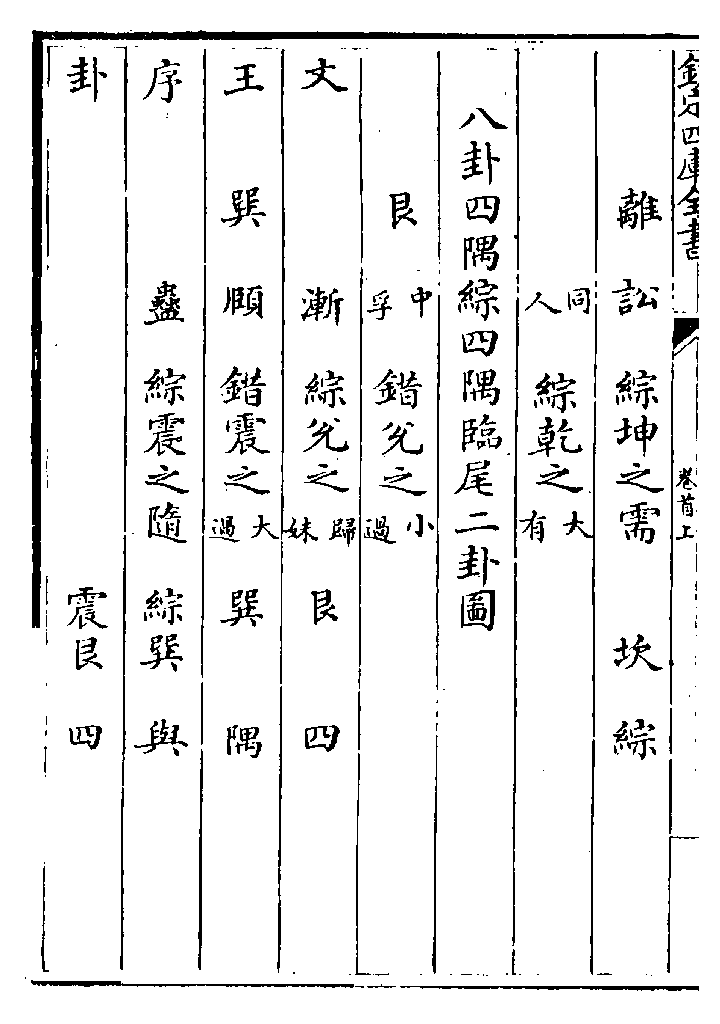 欽定四庫全書
卷首上
離 訟 綜坤之需 坎綜
同人 綜乾之大有
八卦四隅綜四隅臨尾二卦圖
艮 中孚 錯兊之小過
文 漸 綜兊之歸妹 艮 四
王 巽 頤 錯震之大過 巽 隅
序 蠱 綜震之隨 綜巽與
卦 震艮 四